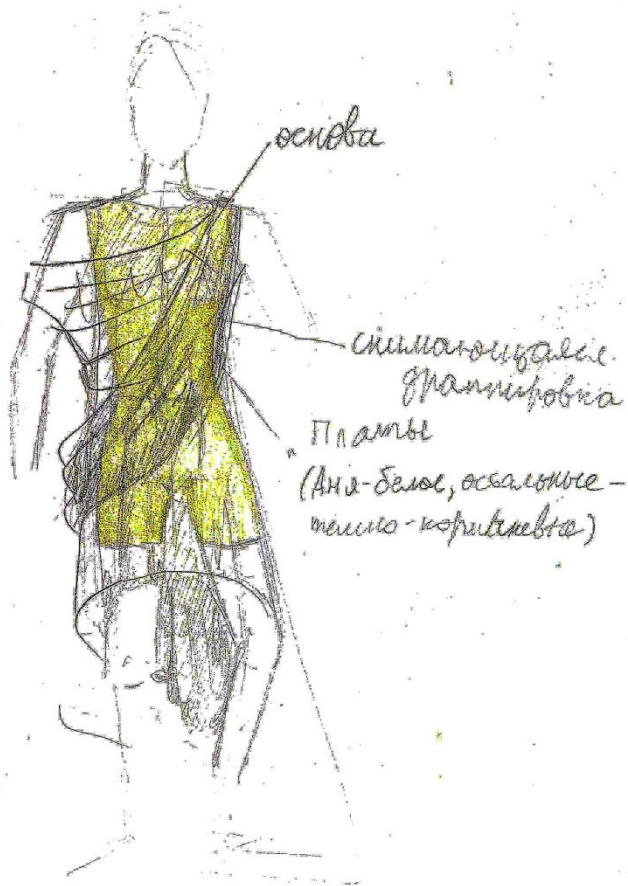 основа
снимающаяся
драппировка
Платье
(Аня-белое, остальные-
темно-коричневые)